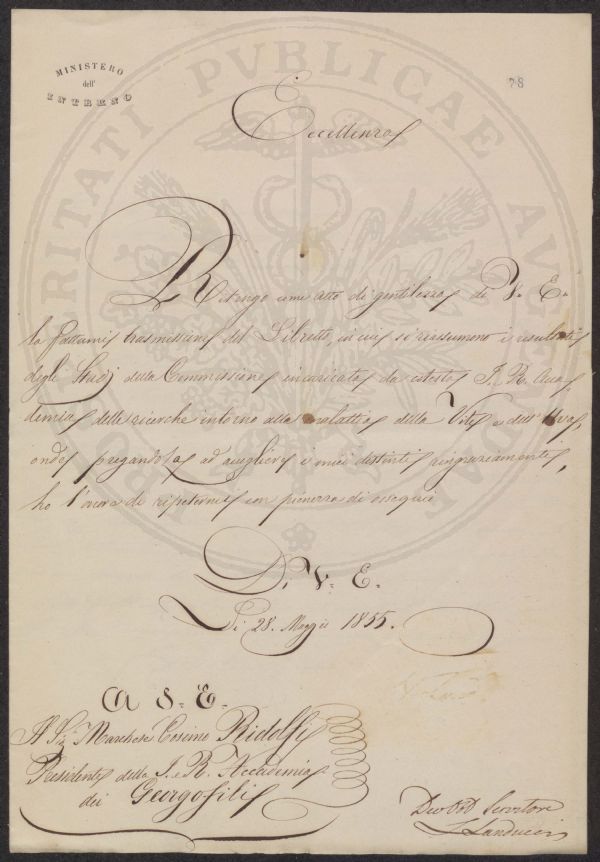 MINISTERO
dell'
INTERNO
78
Eccellenza
Ritengo come atto di gentilezza di V. E.
la fattami trasmissione del Libretto, in cui si riassumono i resultati
degli Studj della Commissione incaricata da cotesta I. R. Acca
demia delle ricerche intorno alla malattia della Vite e dell'Uva,
onde pregandola ad accogliere i miei distinti ringraziamenti,
ho l'onore di ripetermi con pienezza di ossequio
Di V. E.
Li 28. Maggio 1855.
A S. E.
Il Sig. Marchese Cosimo Ridolfi
Presidente della I. e R. Accademia
dei Georgofili
Dev Obb Servitore
Landucci
PROSPERITATI PVBLICAE AVGENDAE